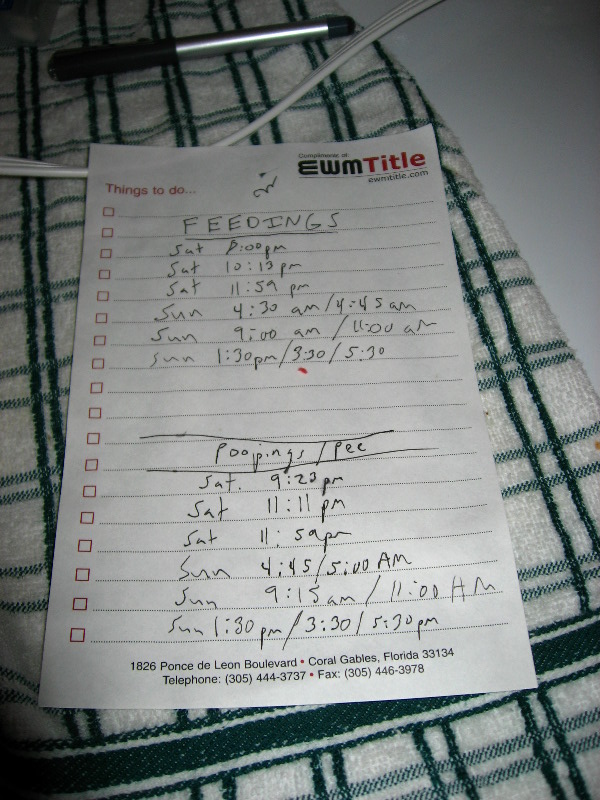 Compliments of:
EWMTitle
Things to do...
ewmtitle.com
FEEDINGS
Sat 8:00pm
Sat 10:13 pm
Sat 11:59 pm
Sun 4:30 am/4:45 am
Sun 9:00 am / 11:00 am
Sun 1:30pm/3:30/5:30
Poopings / Pee
Sat. 9:23pm
Sat 11:11 pm
Sat 11:59pm
Sun 4:45/5:00 AM
Sun 9:15am / 11:00 AM
Sun 1:30pm/3:30/5:30pm
1826 Ponce de Leon Boulevard • Coral Gables, Florida 33134
Telephone: (305) 444-3737 • Fax: (305) 446-3978